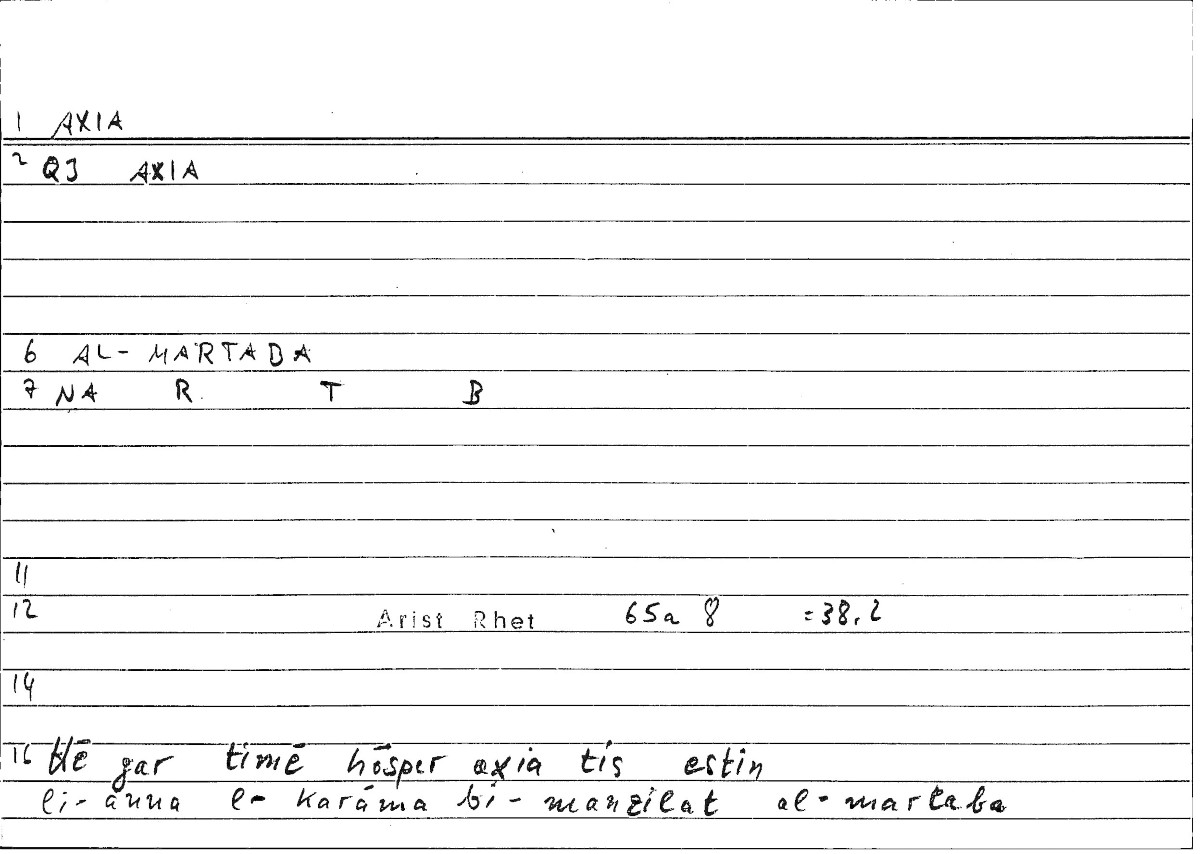 1 AXIA
2 QJ AXIA
6 AL-MARTABA
7 NA R T B
11
12 Arist Rhet 65a 8 =38,2
14
16 Hē gar timē hōsper axia tis estin
li-anna l-karāma bi-manzilat al-martaba